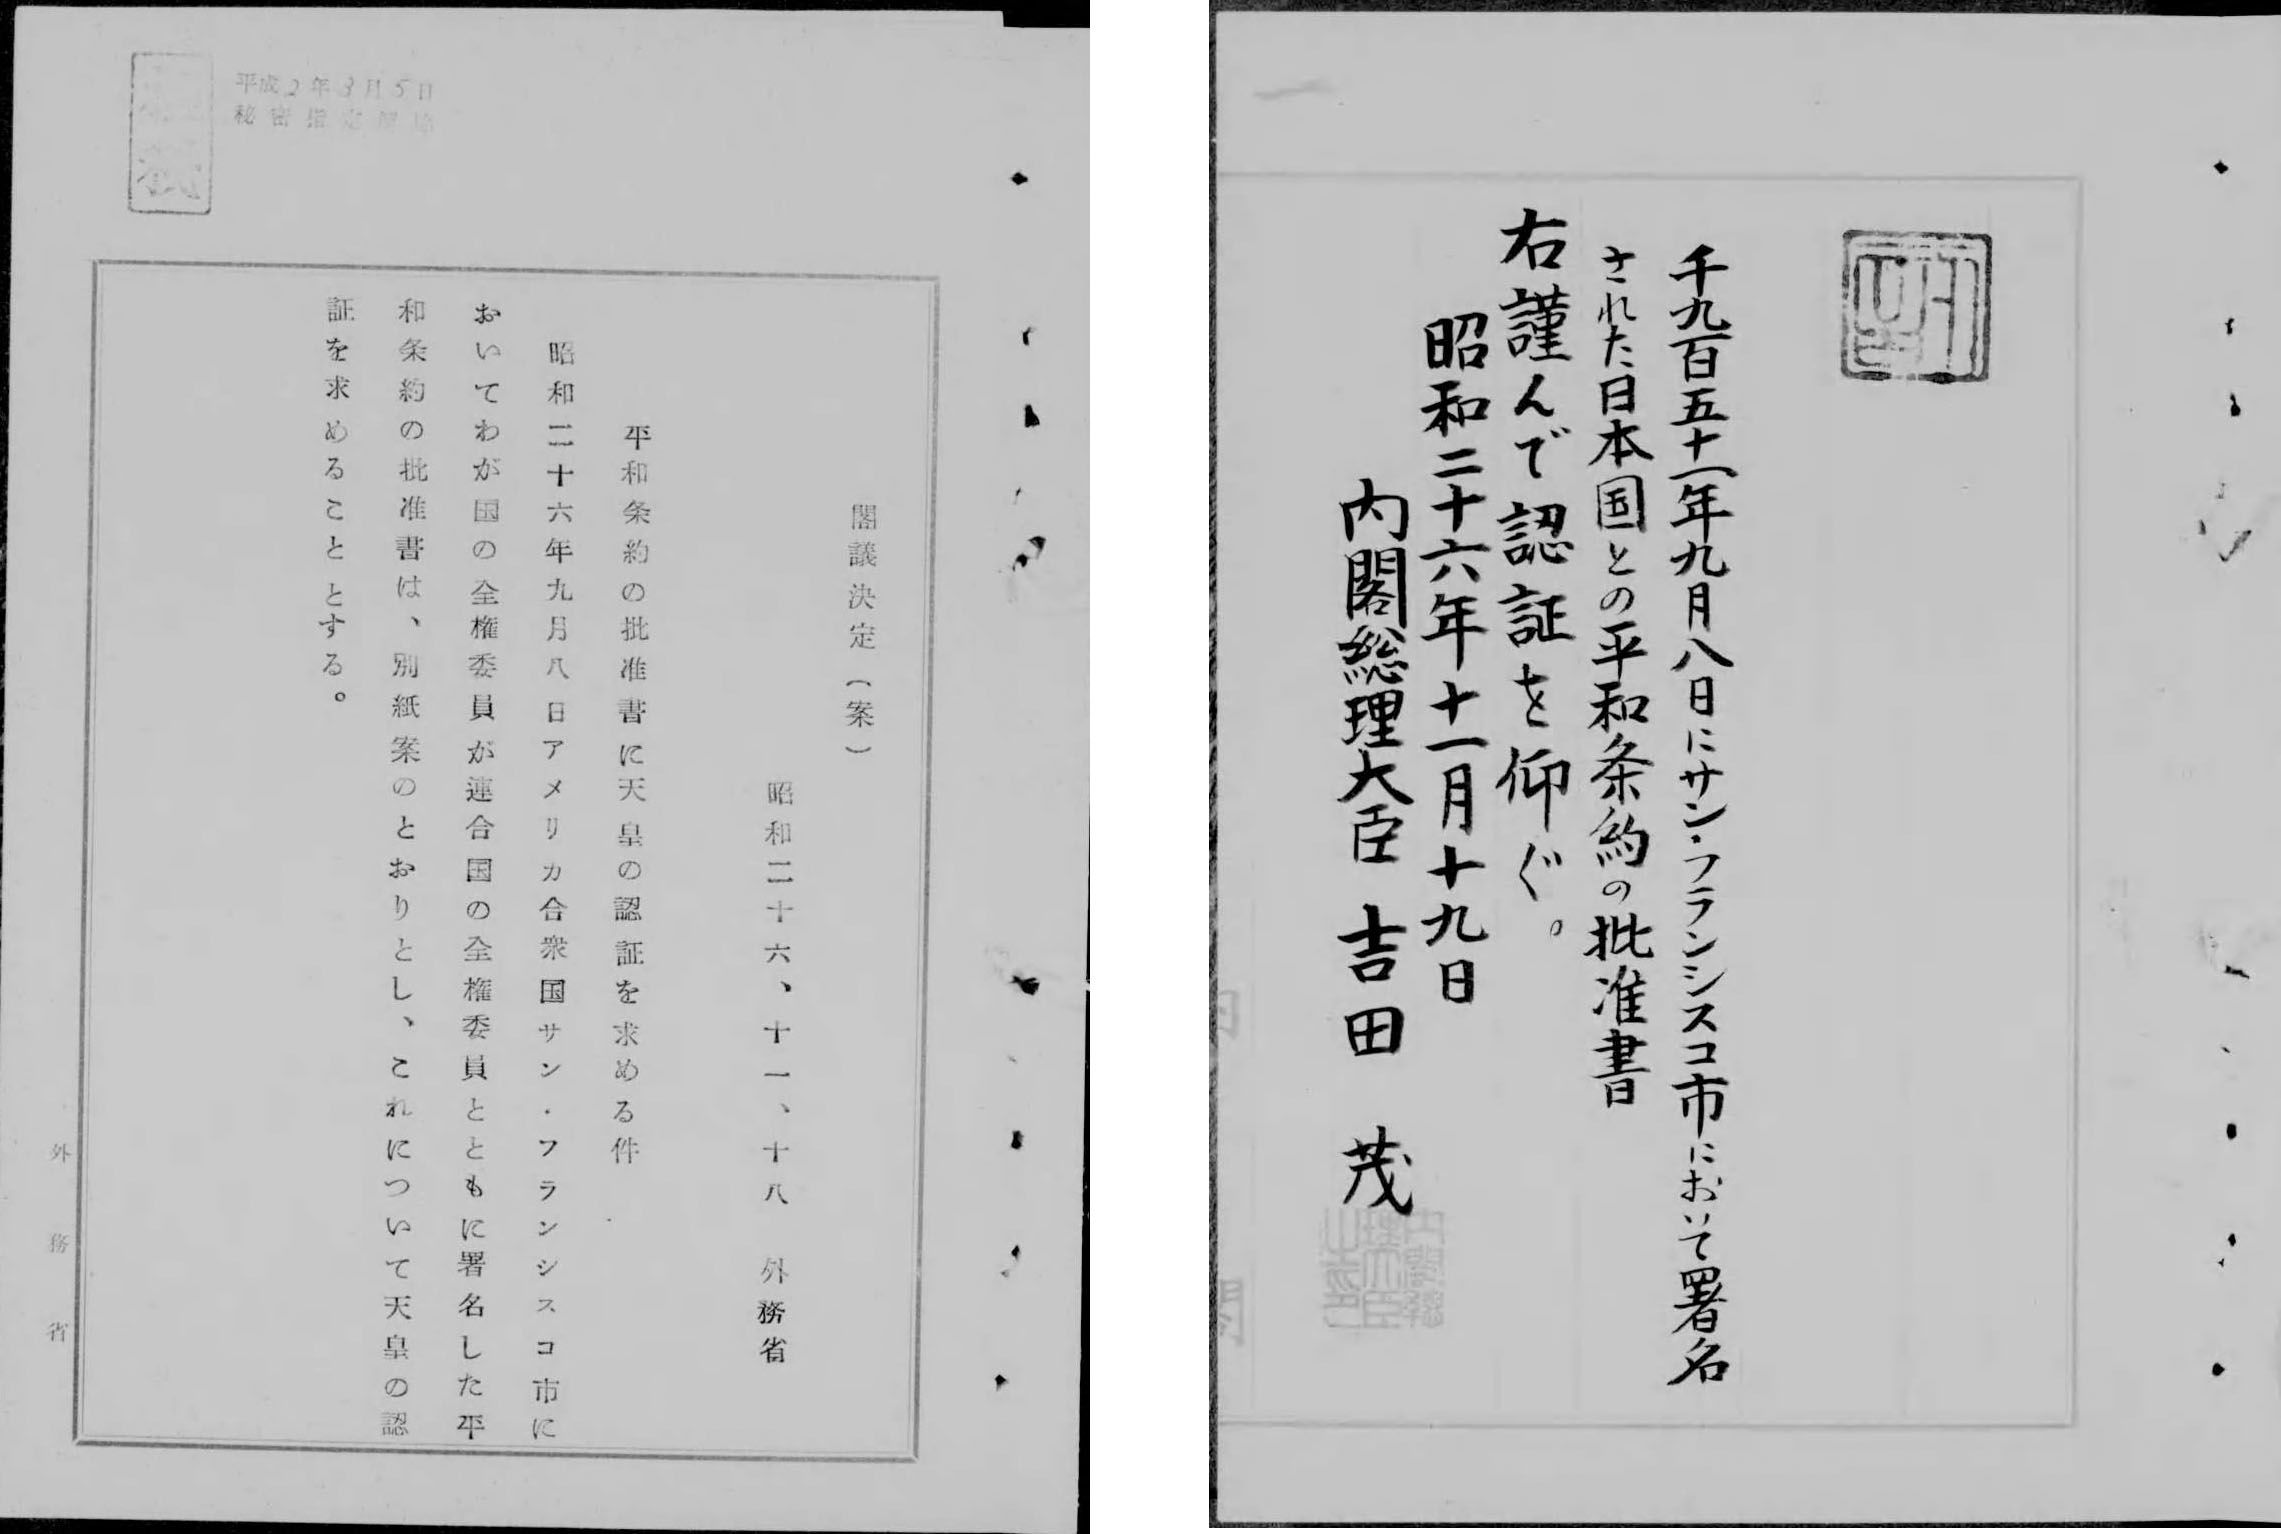 平成2年3月5日
秘密指定解除
閣議決定(案)
昭和二十六、十一、十八 外務省
平和条約の批准書に天皇の認証を求める件
昭和二十六年九月八日アメリカ合衆国サン・フランシスコ市に
おいてわが国の全権委員が連合国の全権委員とともに署名した平
和条約の批准書は、別紙案のとおりとし、これについて天皇の認
証を求めることとする。
外務省
千九百五十一年九月八日にサン・フランシスコ市において署名
された日本国との平和条約の批准書
右謹んで認証を仰ぐ。
昭和二十六年十一月十九日
内閣総理大臣 吉田 茂
内閣総
理大臣
之印